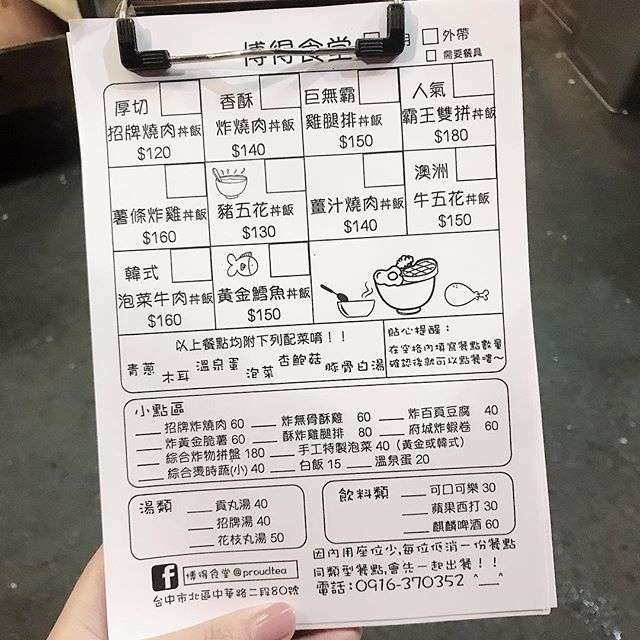 博得食堂 □ 用 □ 外帶
□ 需要餐具
厚切
招牌燒肉丼飯
$120
香酥
炸燒肉丼飯
$140
巨無霸
雞腿排丼飯
$150
人氣
霸王雙拼丼飯
$180
薯條炸雞丼飯
$160
豬五花丼飯
$130
薑汁燒肉丼飯
$140
澳洲
牛五花丼飯
$150
韓式
泡菜牛肉丼飯
$160
黃金鱈魚丼飯
$150
以上餐點均附下列配菜唷!!
青蔥 木耳 溫泉蛋 泡菜 杏鮑菇 豚骨白湯
貼心提醒:
在空格內填寫餐點數量
確認後就可以點餐嘍~
小點區
招牌炸燒肉 60 炸無骨酥雞 60 炸百頁豆腐 40
炸黃金脆薯 60 酥炸雞腿排 80 府城炸蝦卷 60
綜合炸物拼盤 180 手工特製泡菜 40 (黃金或韓式)
綜合燙時蔬(小) 40 白飯 15 溫泉蛋 20
湯類
貢丸湯 40
招牌湯 40
花枝丸湯 50
飲料類
可口可樂 30
蘋果西打 30
麒麟啤酒 60
f 博得食堂@proudtea
台中市北區中華路二段80號
因內用座位少,每位低消一份餐點
同類型餐點,會先一起出餐!!
電話:0916-370352 ^__^